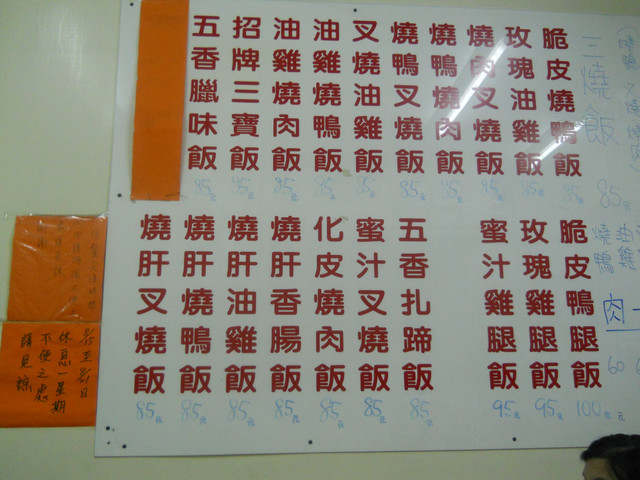 脆皮燒鴨飯 85元
玫瑰油雞飯 85元
燒肉叉燒飯 85元
燒鴨燒肉飯 85元
燒鴨叉燒飯 85元
叉燒油雞飯 85元
油雞燒鴨飯 85元
油雞燒肉飯 85元
招牌三寶飯 85元
五香臘味飯 85元
脆皮鴨腿飯 100元
玫瑰雞腿飯 95元
蜜汁雞腿飯 95元
五香扎蹄飯 85元
蜜汁叉燒飯 85元
化皮燒肉飯 85元
燒肝香腸飯 85元
燒肝油雞飯 85元
燒肝燒鴨飯 85元
燒肝叉燒飯 85元
三燒飯 85元
肉
60
休息一星期
不便之處
請見諒